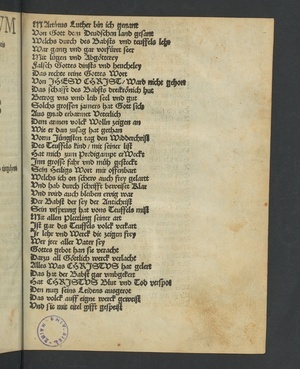 Martinus Luther bin ich genant
Von Gott dem Deudschen land gesant
Welchs durch des Babsts und teuffels lehr
War gantz und gar vorfüret seer
Mit lügen und Abgötterey
Falsch Gottes dinsts und heucheley
Das rechte reine Gottes Wort
Von JHESV CHRIST / Ward nicht gehort
Das schafft des Babsts
Betrog vns vmb leib seel vnd gut
Solchs grossen jamers hat Gott sich
Aus gnad erbarmet Veterlich
Dem armen volck Wolln zeigen an
Wie er dan zusag hat gethan
Vorm Jüngsten tag den Widderchrist
Des Teuffels kind / mit seiner list
Hat mich zum Predigampt erWeckt
Inn grosse fahr vnd müh gesteckt
Sein Heiligs Wort mir offenbart
Welchs ich on scherw auch frey gelart
Vnd hab durch schrifft beweiset klar
Vnd wird auch bleiben ewig war
Der Babst der sey der Antichrist
Sein vrsprung hat vons Teuffels mist
Mit aller seiner art
Ist gar des Teuffels volck verkart
Jr lehr vnd Werck die zeigen frey
Wer jrer aller Vater sey
Gottes gebot han sie veracht
Darzu all Götlich werck verlacht
Alles Was CHRISTVS hat gelert
Das hat der Babst gar vmbgekert
Hat CHRISTVS Blut vnd Tod verspot
Den nutz seins Leidens ausgerot
Das volck auff eigne werck geweist
Vnd sie mit eitel gifft gespeist